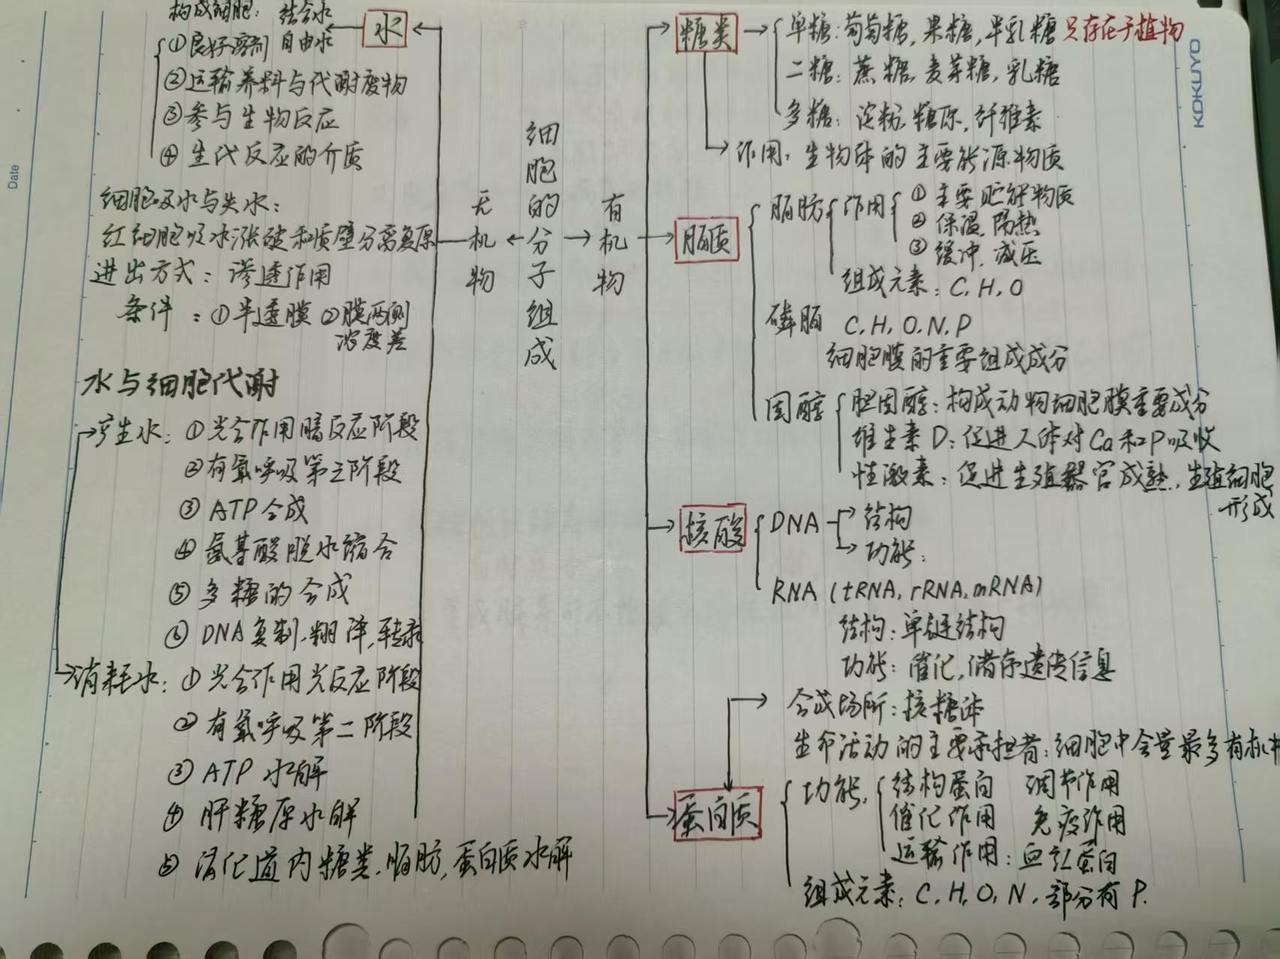 构成细胞：结合水
水
①良好溶剂 自由水
②运输养料与代谢废物
③参与生物反应
④生化反应的介质
细胞吸水与失水：
红细胞吸水涨破和质壁分离复原
进出方式：渗透作用
条件：①半透膜 ②膜两侧
浓度差
水与细胞代谢
产生水：①光合作用暗反应阶段
②有氧呼吸第三阶段
③ATP合成
④氨基酸脱水缩合
⑤多糖的合成
⑥DNA复制,翻译,转录
消耗水：①光合作用光反应阶段
②有氧呼吸第二阶段
③ATP水解
④肝糖原水解
⑤消化道内糖类,脂肪,蛋白质水解
无机物
细胞的分子组成
有机物
糖类
单糖：葡萄糖,果糖,半乳糖 只存在于植物
二糖：蔗糖,麦芽糖,乳糖
多糖：淀粉,糖原,纤维素
作用：生物体的主要能源物质
脂质
脂肪 作用 ①主要贮能物质
②保温,隔热
③缓冲,减压
组成元素：C,H,O
磷脂 C,H,O,N,P
细胞膜的重要组成成分
固醇 胆固醇：构成动物细胞膜重要成分
维生素D：促进人体对Ca和P吸收
性激素：促进生殖器官成熟,生殖细胞
形成
核酸
DNA 结构
功能：
RNA (tRNA,rRNA,mRNA)
结构：单链结构
功能：催化,储存遗传信息
蛋白质
合成场所：核糖体
生命活动的主要承担者：细胞中含量最多有机
功能, 结构蛋白 调节作用
催化作用 免疫作用
运输作用：血红蛋白
组成元素：C,H,O,N,部分有P.
KOKUYO
Date